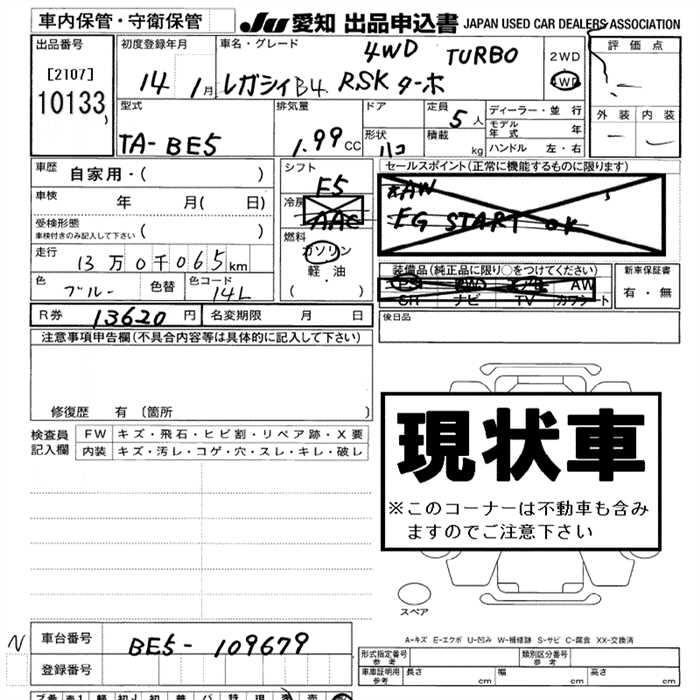 車内保管・守衛保管 JU 愛知 出品申込書 JAPAN USED CAR DEALERS ASSOCIATION
出品番号 初度登録年月 車名・グレード 4WD TURBO 2WD 評価点
[2107] 14 1月 レガシィB4 RSK ターボ 4WD
10133
型式 排気量 ドア 定員 5人 ディーラー・並行 外装 内装
モデル年式 年
TA-BE5 1.99CC 形状 ハコ 積載 kg ハンドル 左・右
車歴 自家用・( ) シフト F5 セールスポイント(正常に機能するものに限ります)
車検 年 月( 日) 冷房 AAC AW
受検形態 EG START OK
車検付きのみ記入して下さい ( ) 燃料
走行 13万0千065km ガソリン
軽油 装備品(純正品に限り○をつけてください) 新車保証書
色 ブルー 色替 色コード 14L ( ) PS PW AW 有・無
SR ナビ TV カワシート
R券 13620円 名変期限 月 日 後日品
注意事項申告欄(不具合内容等は具体的に記入して下さい)
修復歴 有 〔箇所 〕
検査員 FW キズ・飛石・ヒビ割・リペア跡・X要
記入欄 内装 キズ・汚レ・コゲ・穴・スレ・キレ・破レ
現状車
※このコーナーは不動車も含み
ますのでご注意下さい
スペア
A-キズ E-エクボ U-凹み W-補修跡 S-サビ C-腐食 XX-交換済
N 車台番号 BE5-109679
形式指定番号 参考 類別区分番号 参考
登録番号 車庫証明用 参考 長さ 幅 高さ